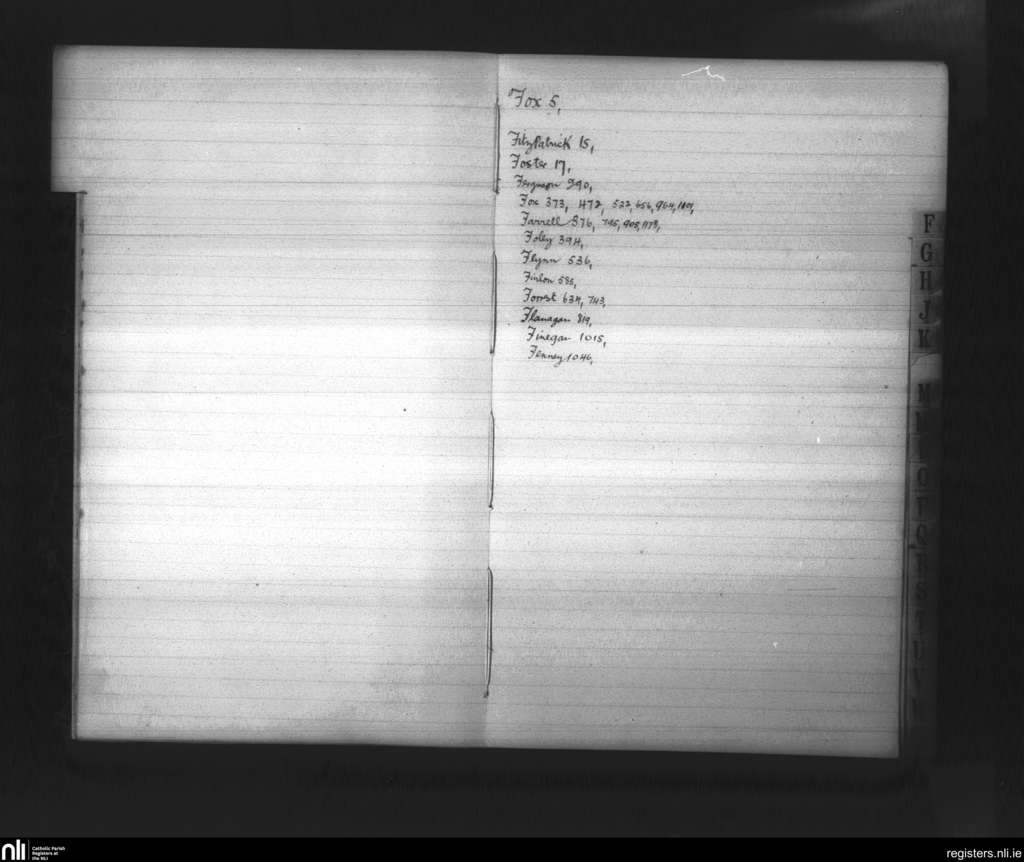 Fox 5,
FitzPatrick 15,
Foster 17,
Ferguson 290,
Fox 373, 472, 522, 656, 964, 1101,
Farrell 376, 795, 905, 1173,
Foley 394,
Flynn 536,
Finlon 585,
Forrest 634, 743,
Flanagan 819,
Finegan 1015,
Fenney 1046,
F
G
H
J
K
M
O
Q
S
nli
Catholic Parish
Registers at
the NLI
registers.nli.ie